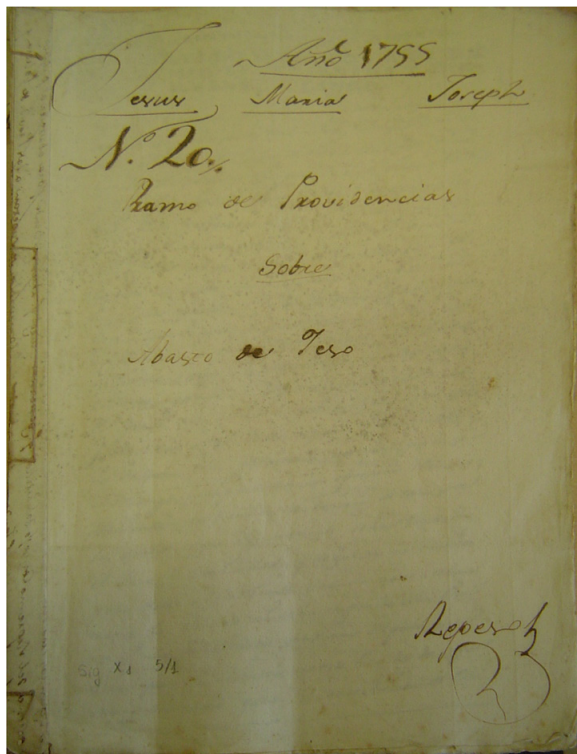 Año 1755
Jesus Maria Joseph
N. 20.
Ramo de Providencias
Sobre
Abasto de Yeso
Sig X1 5/1